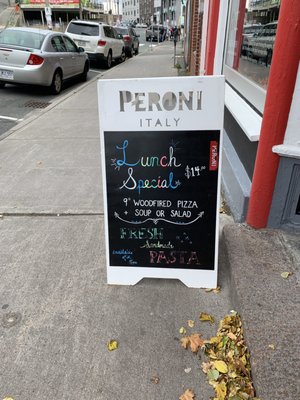 PERONI
ITALY
Lunch
Special
$14
9" WOODFIRED PIZZA
+ SOUP OR SALAD
FRESH
handmade
PASTA